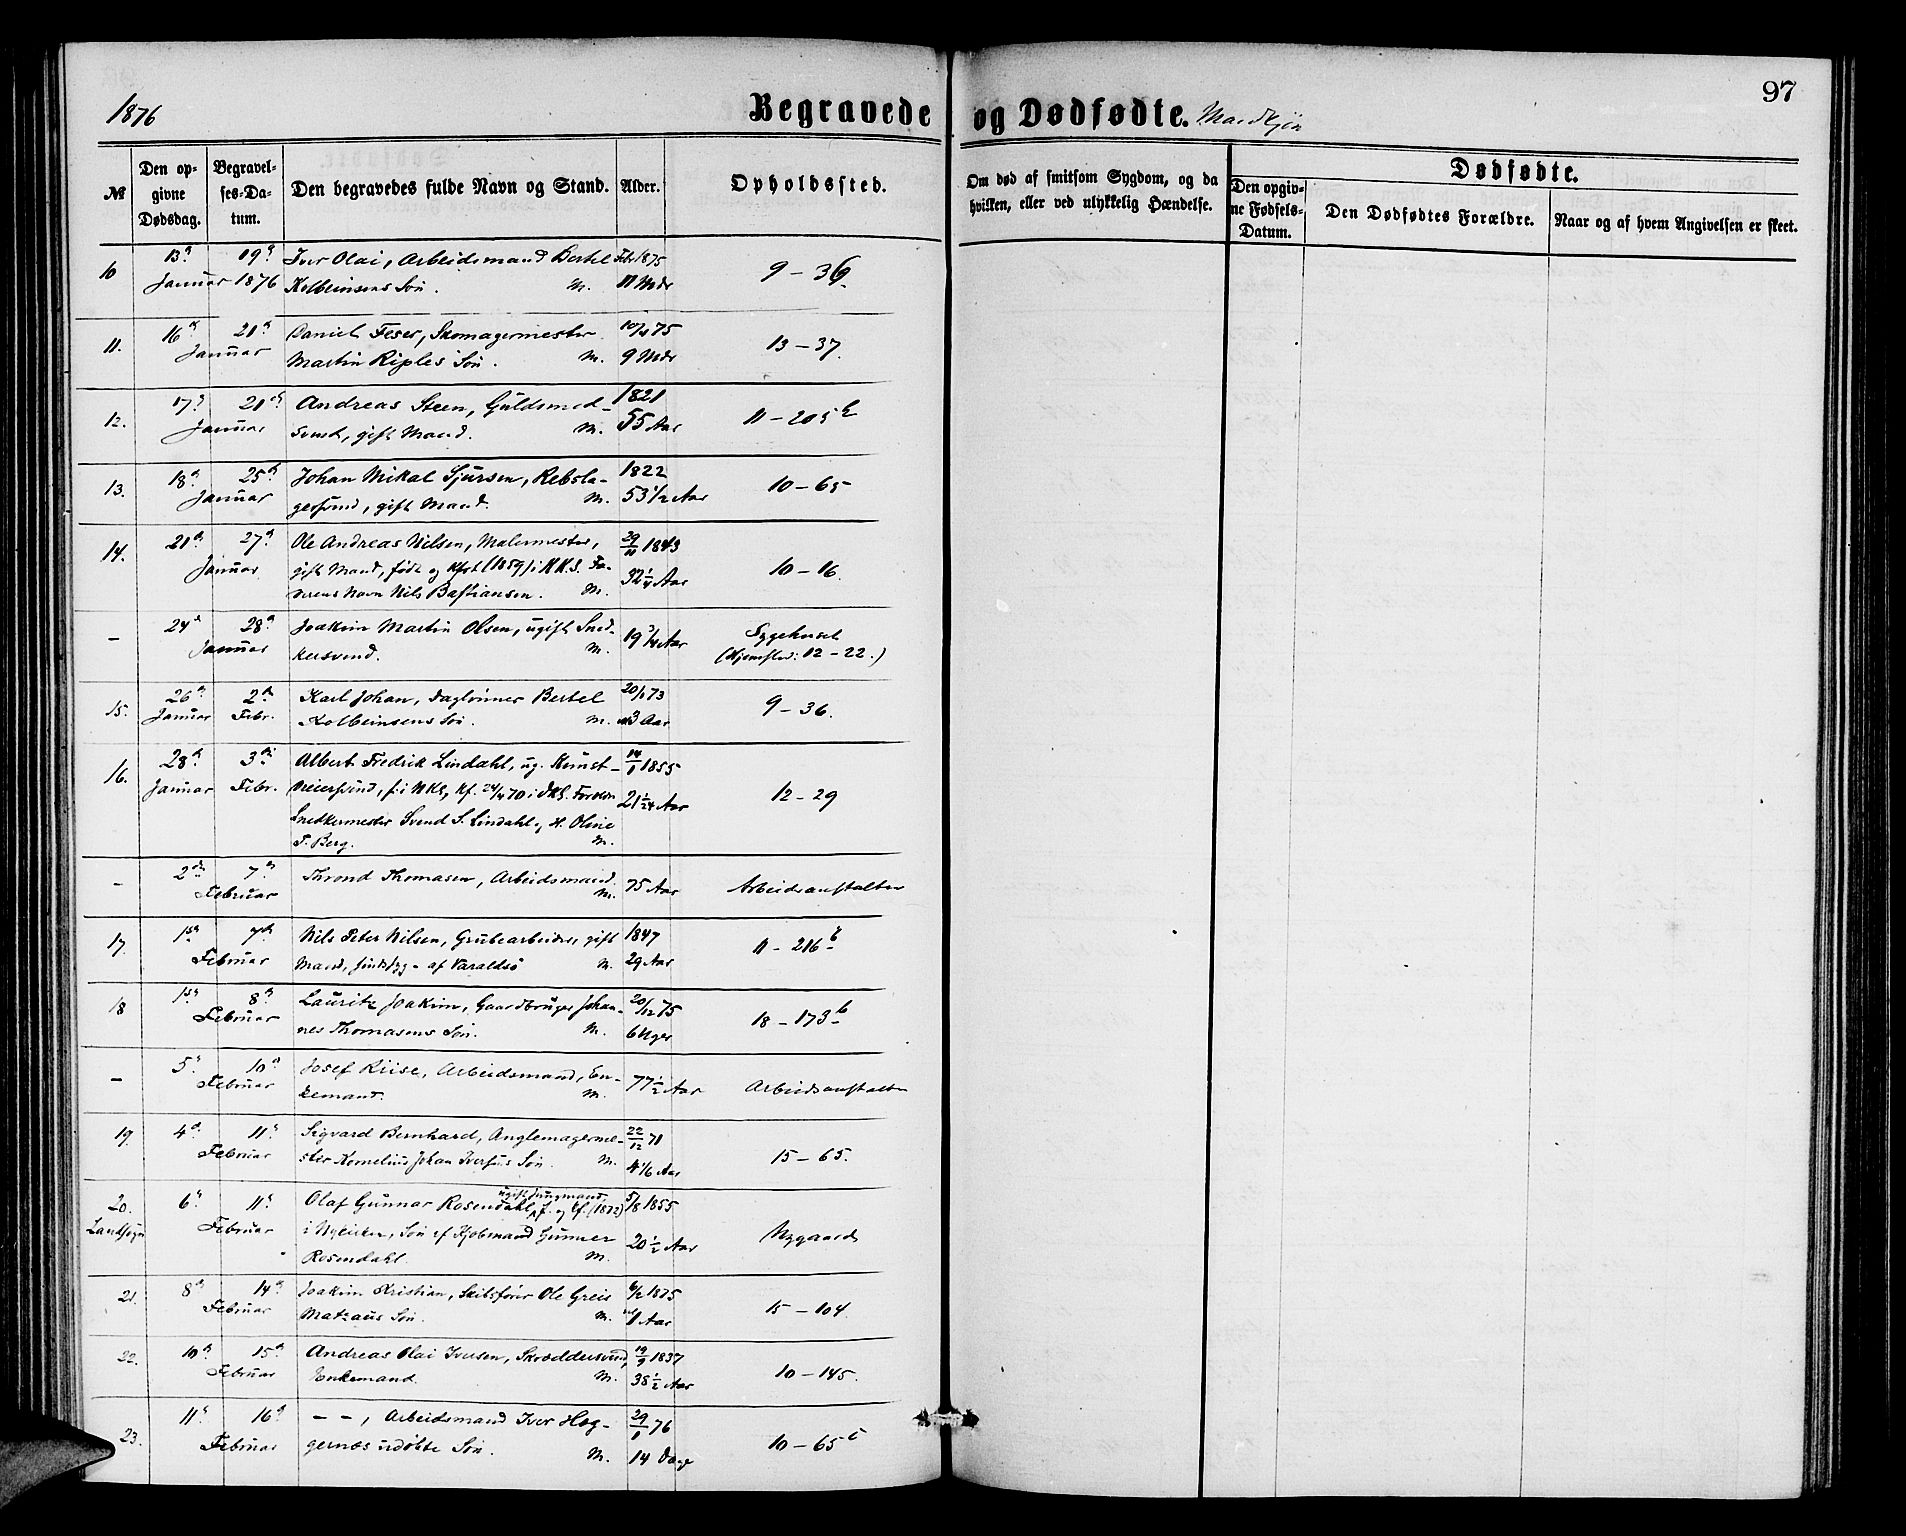 1876
Begravede og Dødfødte. Mandkjøn
97
№
Den opgivne Dødsdag.
Begravelses-Datum.
Den begravedes fulde Navn og Stand.
Alder.
Opholdssted.
Om død af smitsom Sygdom, og da hvilken, eller ved ulykkelig Hændelse.
Dødfødte.
Den opgivne Fødsels-Datum.
Den Dødfødtes Forældre.
Naar og af hvem Angivelsen er skeet.
10 13de 19de Iver Olai, Arbeidsmand Bertel Febr 1875 9 – 36
Januar 1876 Kolbeinsens Søn. M. 11 Mdr
11. 16de 21de Daniel Feser, Skomagermester 10/4 75 13 – 37.
Januar Martin Riples Søn. M. 9 Mdr
12. 17de 21de Andreas Steen, Guldsmed- 1821 11 – 205
Januar svend, gift Mand. M. 55 Aar
13. 18de 25de Johan Mikal Sjursen, Rebsla- 1822 10 – 65
Januar gersvend, gift Mand. M. 53 1/2 Aar
14. 21de 27de Ole Andreas Nilsen, Malermester, 29/11 1843 10 – 16.
Januar gift Mand, født og kfrt (1859) i KKS. Fa-
derens Navn Nils Bastiansen. M. 32 1/4 Aar
– 24de 28de Joakim Martin Olsen, ugift Sned- 19 3/4 Aar Sygehuset
Januar kersvend. M. (Hjemsted: 12 – 22.)
15. 26de 2den Karl Johan, Daglønner Bertel 20/1 73 9 – 36.
Januar Febr. Kolbeinsens Søn. M. 3 Aar
16. 28de 3die Albert Fredrik Lindahl, ug. Kunst- 14/1 1855 12 – 29
Januar Febr. dreiersvend, f. i NKS, kf. 24/4 70 i DKS. Foræld. 21 1/24 Aar
Snedkermester Svend S. Lindahl og H. Oline
T. Berg. M.
– 2den 7de Thrond Thomasen, Arbeidsmand. 75 Aar Arbeidsanstalten
Februar M.
17. 1ste 7de Nils Peter Nilsen, Grubearbeider, gift 1847 11 – 216 b
Februar Mand, af Varaldsø M. 29 Aar
18 1ste 8de Lauritz Joakim, Gaardbruger Johan- 20/12 75 18 – 173 b
Februar nes Thomasens Søn. M. 6 Uger
– 5te 10de Josef Riise, Arbeidsmand, En- 77 1/2 Aar Arbeidsanstalten
Februar kemand. M.
19. 4de 11te Sigvard Bernhard, Anglemagerme- 22/12 71 15 – 65.
Februar ster Kornelius Johan Iversens Søn. M. 4 1/6 Aar
20. 6te 11te Olaf Gunnar Rosendahl, ugift Ungmand, f. og kf. (1872) 5/8 1855 Nygaard
Landsogn Februar i Nykirken, Søn af Kjøbmand Gunner 20 1/2 Aar
Rosendahl. M.
21. 8de 14de Joakim Kristian, Skibsfører Ole Greis 6/2 1875 15 – 104.
Februar Matzaus Søn. M. 1 Aar
22. 10de 15de Andreas Olai Iversen, Skræddersvend, 19/9 1837 10 – 145.
Februar Enkemand. M. 38 1/2 Aar
23. 11te 16de – –, Arbeidsmand Iver Hog- 29/1 76 10 – 65 c
Februar gernæs udøbte Søn. M. 14 Dage